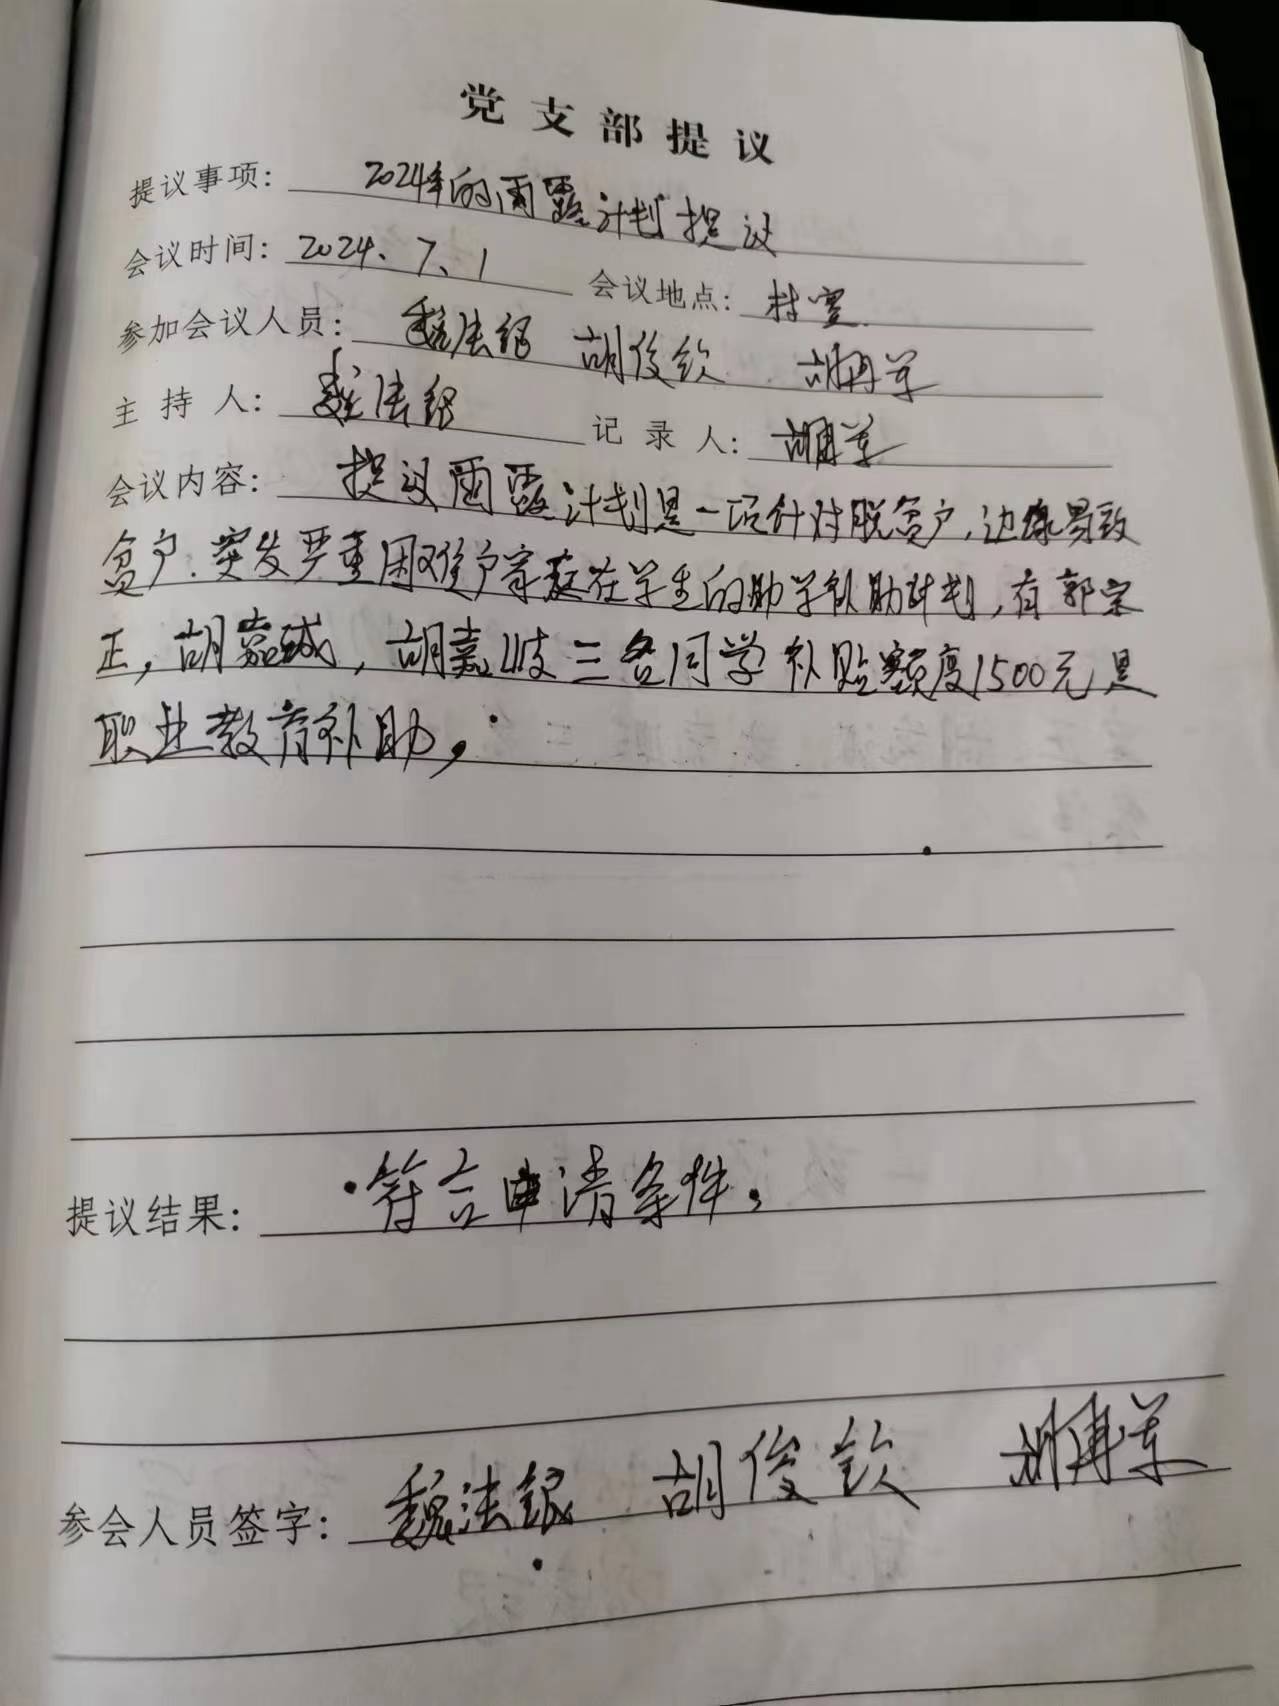 党支部提议
提议事项： 2024年的雨露计划提议
会议时间： 2024、7、1 会议地点： 村室
参加会议人员： 魏法银 胡俊钦 胡再军
主持人： 魏法银 记录人： 胡再军
会议内容： 提议雨露计划是一项针对脱贫户，边缘易致
贫户、突发严重困难户家庭在学生的助学补助计划，有郭宗
正，胡嘉诚，胡嘉岐三名同学补贴额度1500元是
职业教育补助，
提议结果： 符合申请条件。
参会人员签字： 魏法银 胡俊钦 胡再军